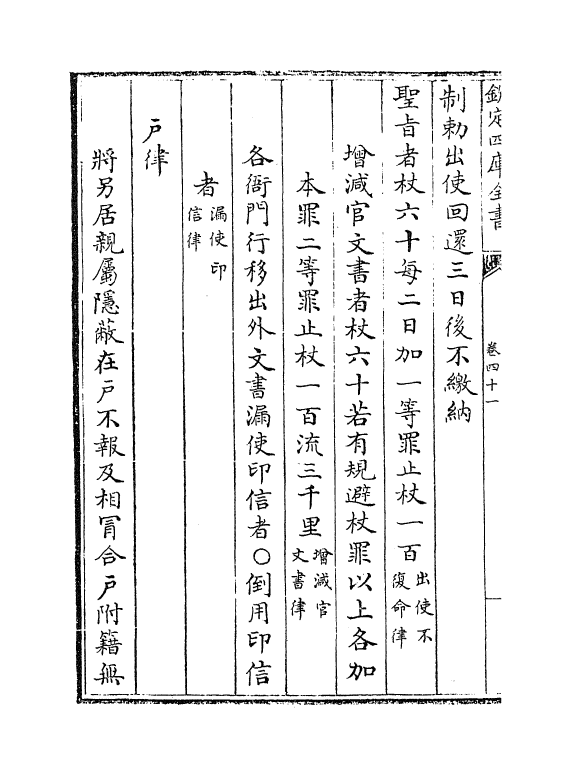 欽定四庫全書
卷四十一
制勅出使回還三日後不繳納
聖旨者杖六十每二日加一等罪止杖一百出使不復命律
增減官文書者杖六十若有規避杖罪以上各加
本罪二等罪止杖一百流三千里增減官文書律
各衙門行移出外文書漏使印信者○倒用印信
者漏使印信律
戶律
將另居親屬隱蔽在戶不報及相冐合戶附籍無